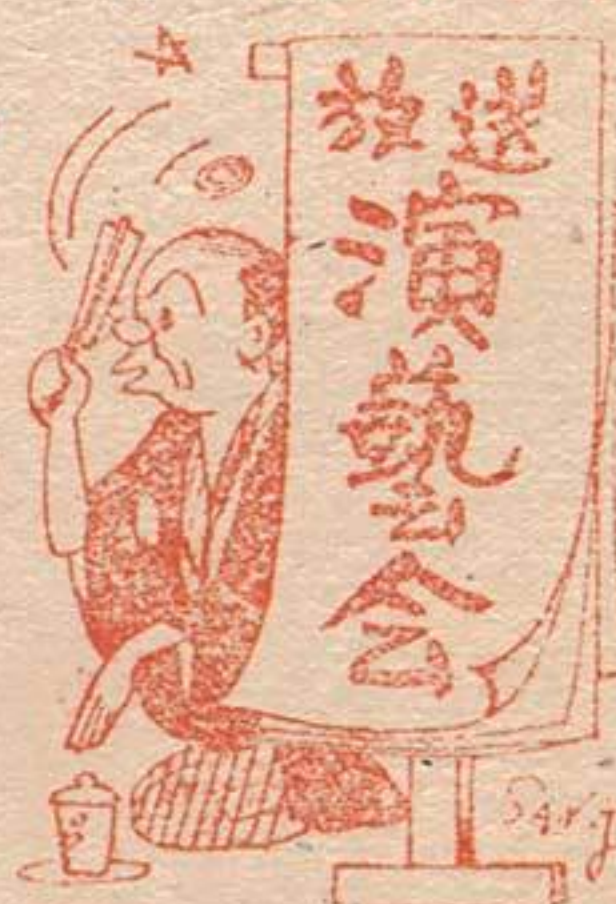 放送
演藝会